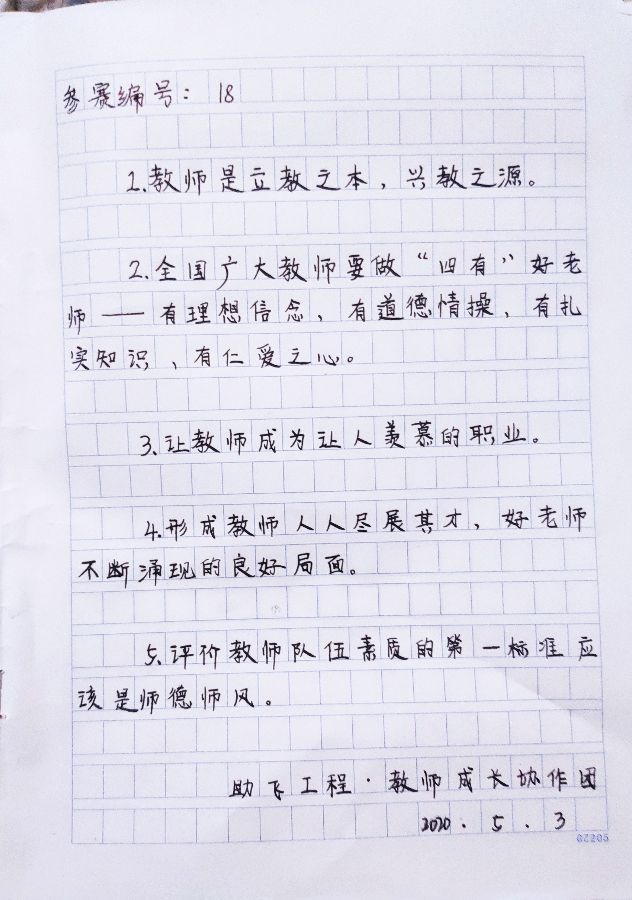 参赛编号：18
1.教师是立教之本，兴教之源。
2.全国广大教师要做“四有”好老
师——有理想信念、有道德情操、有扎
实知识、有仁爱之心。
3.让教师成为让人羡慕的职业。
4.形成教师人人尽展其才、好老师
不断涌现的良好局面。
5.评价教师队伍素质的第一标准应
该是师德师风。
助飞工程·教师成长协作团
2020.5.3